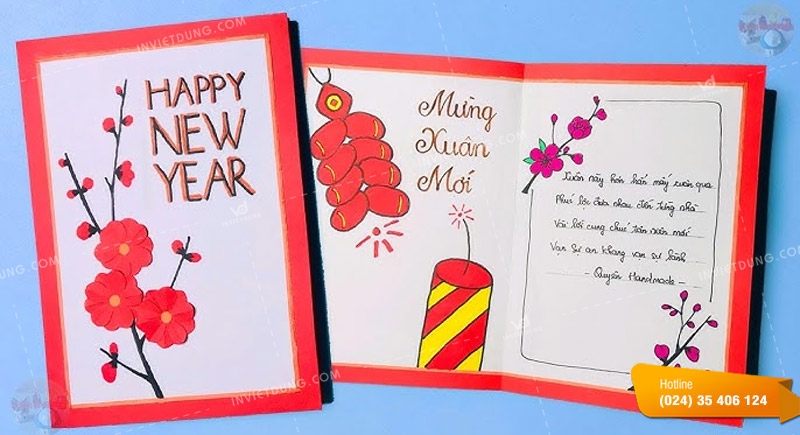 HAPPY
NEW
YEAR
Mừng
Xuân
Mới
Xuân này hơn hẳn mấy xuân qua
Phúc lộc đưa nhau đến từng nhà
Vài lời cung chúc tân xuân mới
Vạn sự an khang vạn sự lành
- Quyên Handmade -
Hotline
(024) 35 406 124
INVIETDUNG.COM
INVIETDUNG.COM
INVIETDUNG.COM
INVIETDUNG.COM